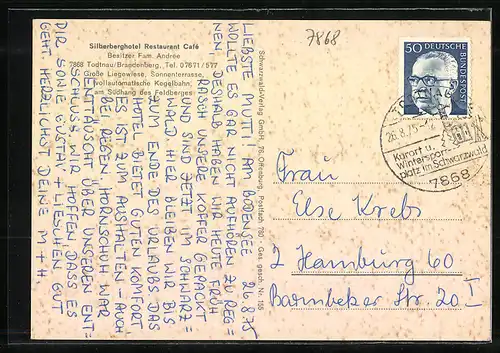 Silberberghotel Restaurant Café
Besitzer Fam. Andree
7868 Todtnau/Brandenberg, Tel. 07671/577
Große Liegewiese, Sonnenterrasse,
vollautomatische Kegelbahn,
am Südhang des Feldberges
LIEBSTE MUTTI! AM BODENSEE 26.8.75
WOLLTE ES GAR NICHT AUFHÖREN ZU REG=
NEN DESHALB HABEN WIR HEUTE FRÜH
RASCH UNSERE KOFFER GEPACKT
UND SIND JETZT IM SCHWARZ=
WALD HIER BLEIBEN WIR BIS
ZUM ENDE DES URLAUBS DAS
HOTEL BIETET GUTEN KOMFORT
ES IST ZUM AUSHALTEN - AUCH
BEI REGEN. HORNSCHUH WAR
ENTTÄUSCHT ÜBER UNSEREN ENT=
SCHLUSS WIR HOFFEN DASS ES
DIR SOWIE GUSTAV + LIESCHEN GUT
GEHT HERZLICHST DEINE M + H.
Schwarzwald-Verlag GmbH, 76 Offenburg, Postfach 780 · Ges. gesch. Nr. 155
7868
50 DEUTSCHE BUNDESPOST
26.8.75
Kurort u.
Wintersport-
platz im Schwarzwald
7868
Frau
Else Krebs
2 Hamburg 60
Barmbeker Str. 20 I